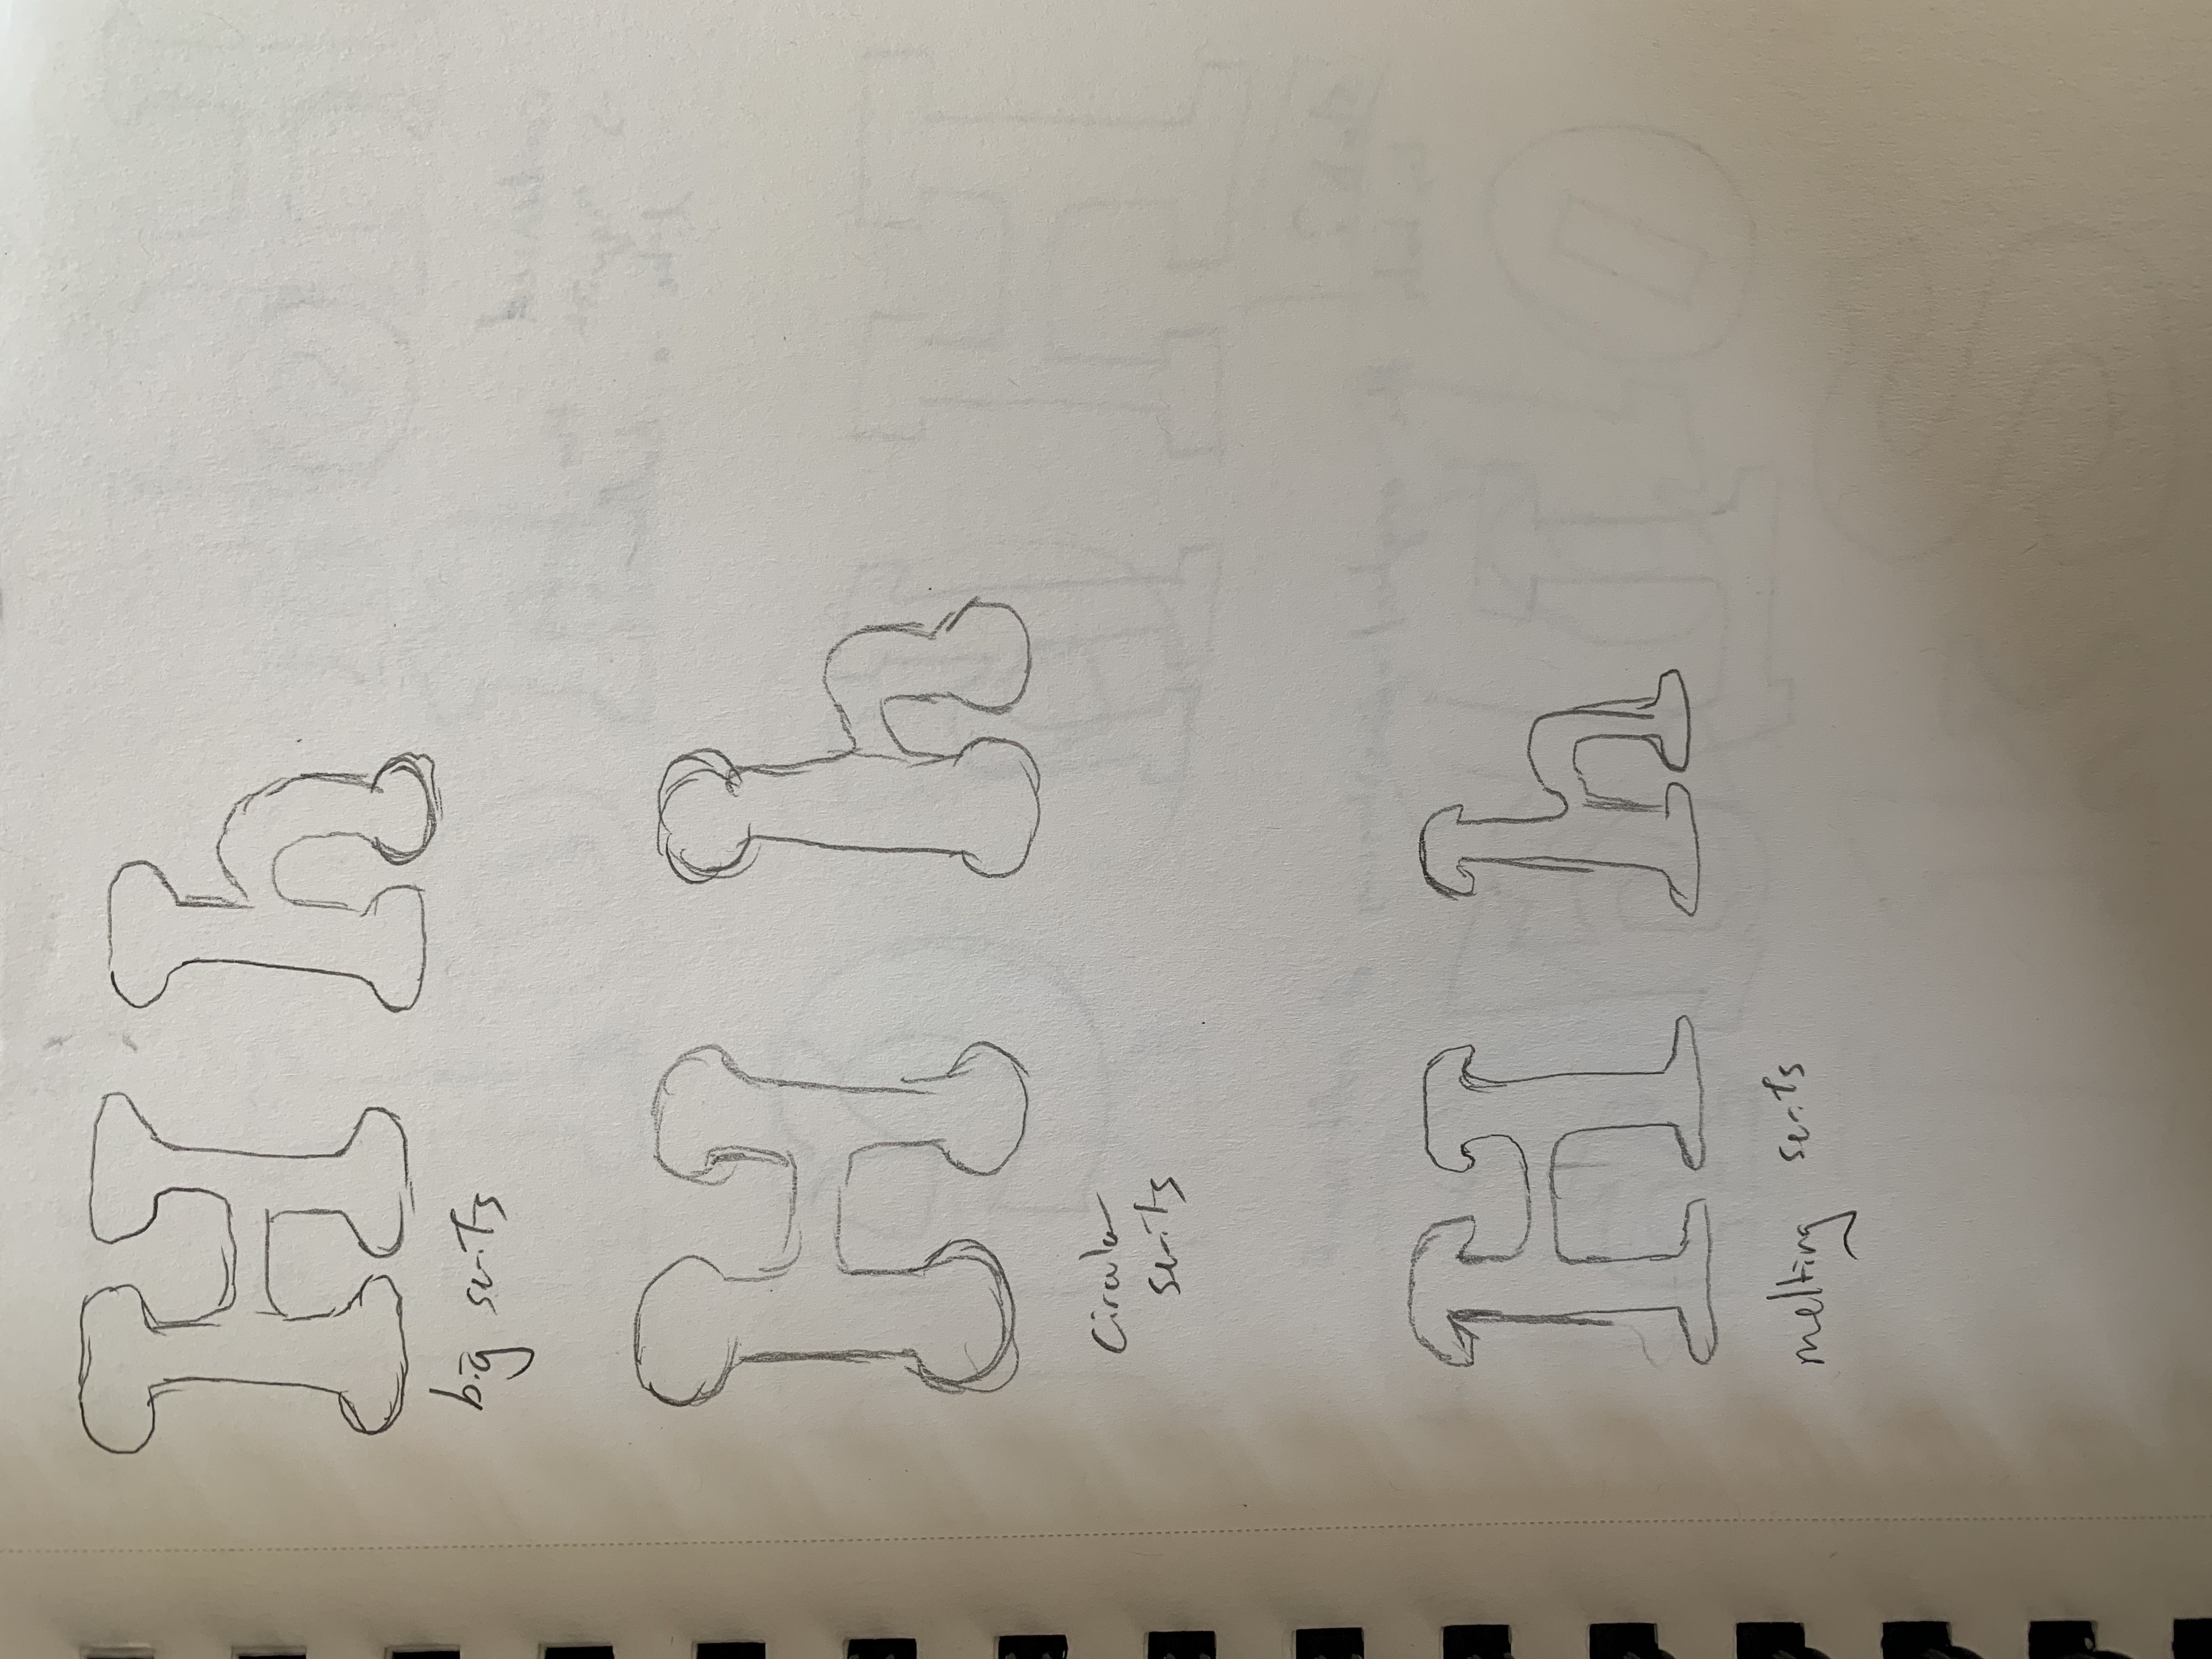 H h
big serifs
H h
Circular
serifs
H h
melting serifs